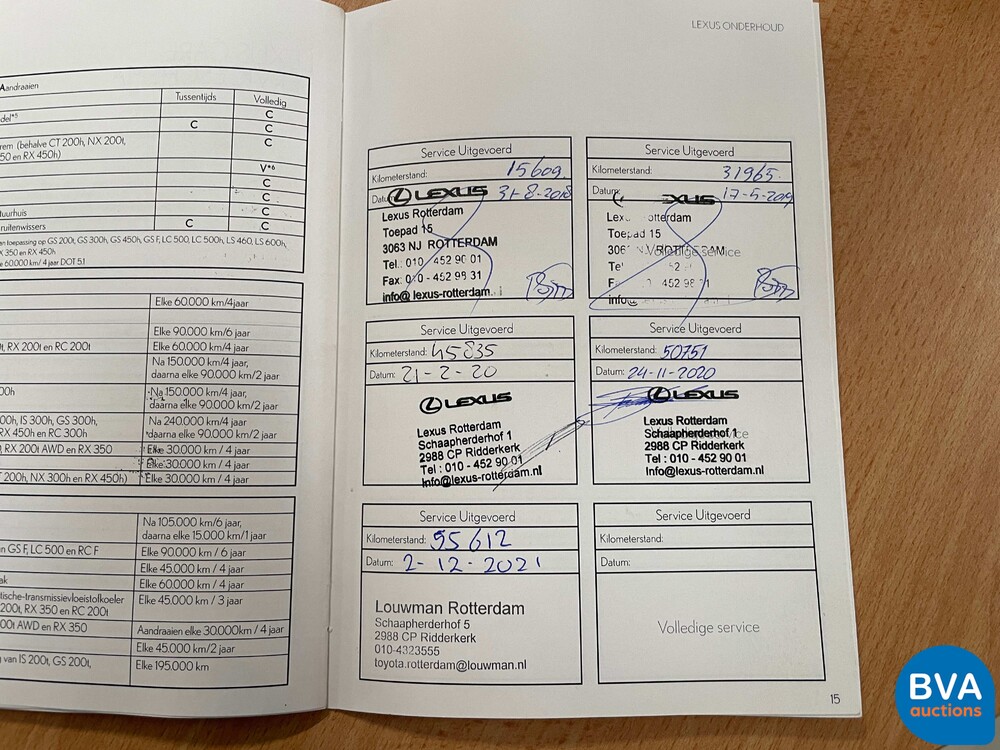 Aandraaien
Tussentijds
Volledig
del*⁵
C
C
C
rem (behalve CT 200h, NX 200t,
50 en RX 450h)
C
V*⁶
C
C
tuurhuis
C
ruitenwissers
C
C
an toepassing op GS 200t, GS 300h, GS 450h, GS F, LC 500, LC 500h, LS 460, LS 600h,
X 350 en RX 450h
e 60.000 km/ 4 jaar DOT 5.1
Elke 60.000 km/4 jaar
Elke 90.000 km/6 jaar
0t, RX 200t en RC 200t
Elke 60.000 km/ 4 jaar
Na 150.000 km/4 jaar,
daarna elke 90.000 km/2 jaar
00h
Na 150.000 km/4 jaar,
daarna elke 90.000 km/2 jaar
00h, IS 300h, GS 300h,
RX 450h en RC 300h
Na 240.000 km/4 jaar
daarna elke 90.000 km/2 jaar
, RX 200t AWD en RX 350
Elke 30.000 km / 4 jaar
Elke 30.000 km / 4 jaar
T 200h, NX 300h en RX 450h)
Elke 30.000 km / 4 jaar
Na 105.000 km/6 jaar,
daarna elke 15.000 km/1 jaar
n GS F, LC 500 en RC F
Elke 90.000 km / 6 jaar
Elke 45.000 km / 4 jaar
ak
Elke 60.000 km / 4 jaar
tische-transmissievloeistofkoeler
200t, RX 350 en RC 200t
Elke 45.000 km / 3 jaar
00t AWD en RX 350
Aandraaien elke 30.000km / 4 jaar
Elke 45.000 km/2 jaar
g van IS 200t, GS 200t,
Elke 195.000 km
LEXUS ONDERHOUD
Service Uitgevoerd
Kilometerstand: 15609.
Datum: 31-8-2018
LEXUS
Lexus Rotterdam
Toepad 15
3063 NJ ROTTERDAM
Tel.: 010 - 452 90 01
Fax: 010 - 452 98 31
info@lexus-rotterdam.
Service Uitgevoerd
Kilometerstand: 31965.
Datum: 17-5-2019
EXUS
Lexus Rotterdam
Toepad 15
3063 NJ ROTTERDAM
Volledige service
Service Uitgevoerd
Kilometerstand: 45835
Datum: 21-2-20
LEXUS
Lexus Rotterdam
Schaapherderhof 1
2988 CP Ridderkerk
Tel : 010 - 452 90 01
Info@lexus-rotterdam.nl
Service Uitgevoerd
Kilometerstand: 50751
Datum: 24-11-2020
LEXUS
Lexus Rotterdam
Schaapherderhof 1
2988 CP Ridderkerk
Tel : 010 - 452 90 01
Info@lexus-rotterdam.nl
Service Uitgevoerd
Kilometerstand: 55612
Datum: 2-12-2021
Louwman Rotterdam
Schaapherderhof 5
2988 CP Ridderkerk
010-4323555
toyota.rotterdam@louwman.nl
Service Uitgevoerd
Kilometerstand:
Datum:
Volledige service
15
BVA
auctions